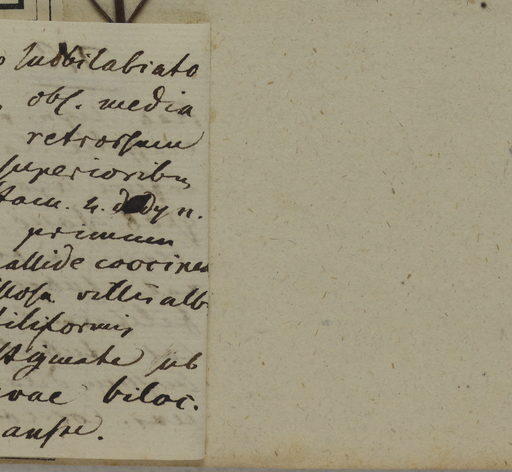 subbilabiato
obs. media
retrorsum
superioribus
stam. 4. didyn.
primum
allide coccinea
llosa villis alb
iliformis
stigmate sub
vae biloc.
ansve.